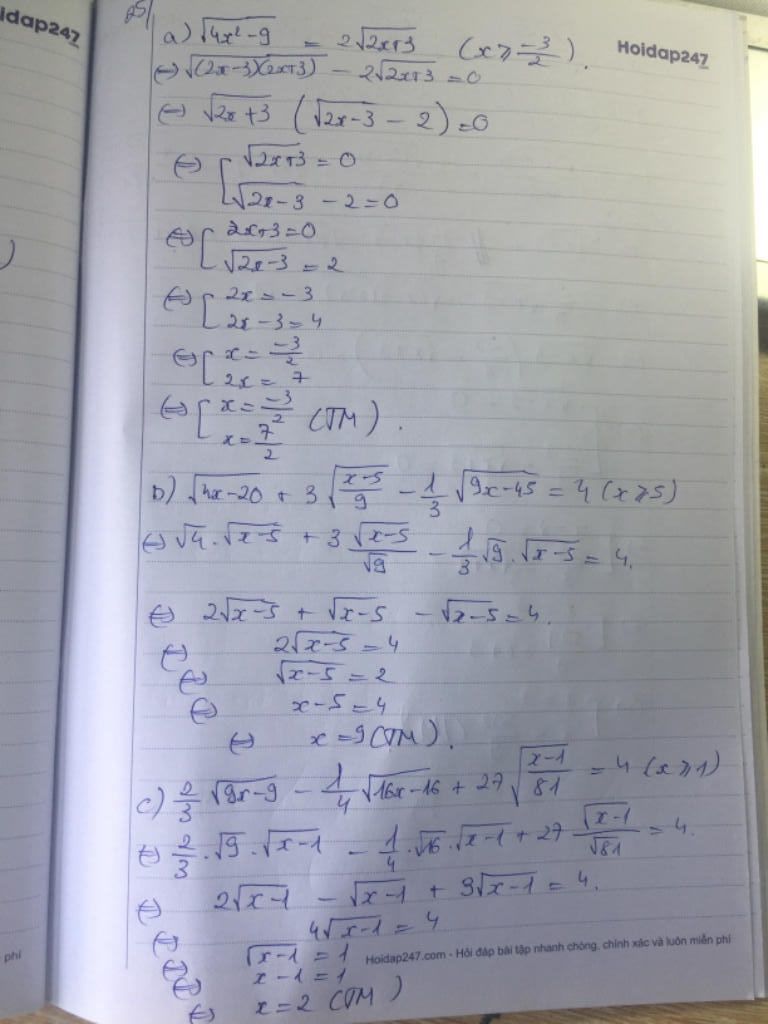 oidap247
25)
a) √(4x² - 9) = 2√(2x+3) (x ≥ -3/2).
Hoidap247
(=) √((2x-3)(2x+3)) - 2√(2x+3) = 0
(=) √(2x+3) (√(2x-3) - 2) = 0
(=) [ √(2x+3) = 0
√(2x-3) - 2 = 0
(=) [ 2x+3 = 0
√(2x-3) = 2
(=) [ 2x = -3
2x - 3 = 4
(=) [ x = -3/2
2x = 7
(=) [ x = -3/2 (TM).
x = 7/2
b) √(4x-20) + 3√((x-5)/9) - 1/3 √(9x-45) = 4 (x ≥ 5)
(=) √4 . √(x-5) + 3 √(x-5)/√9 - 1/3 √9 . √(x-5) = 4.
(=) 2√(x-5) + √(x-5) - √(x-5) = 4.
(=) 2√(x-5) = 4
(=) √(x-5) = 2
(=) x-5 = 4
(=) x = 9 (TM).
c) 2/3 √(9x-9) - 1/4 √(16x-16) + 27 √((x-1)/81) = 4 (x ≥ 1)
(=) 2/3 . √9 . √(x-1) - 1/4 . √16 . √(x-1) + 27 √(x-1)/√81 = 4.
(=) 2√(x-1) - √(x-1) + 3√(x-1) = 4.
(=) 4√(x-1) = 4
(=) √(x-1) = 1
(=) x-1 = 1
(=) x = 2 (TM)
phí
Hoidap247.com - Hỏi đáp bài tập nhanh chóng, chính xác và luôn miễn phí